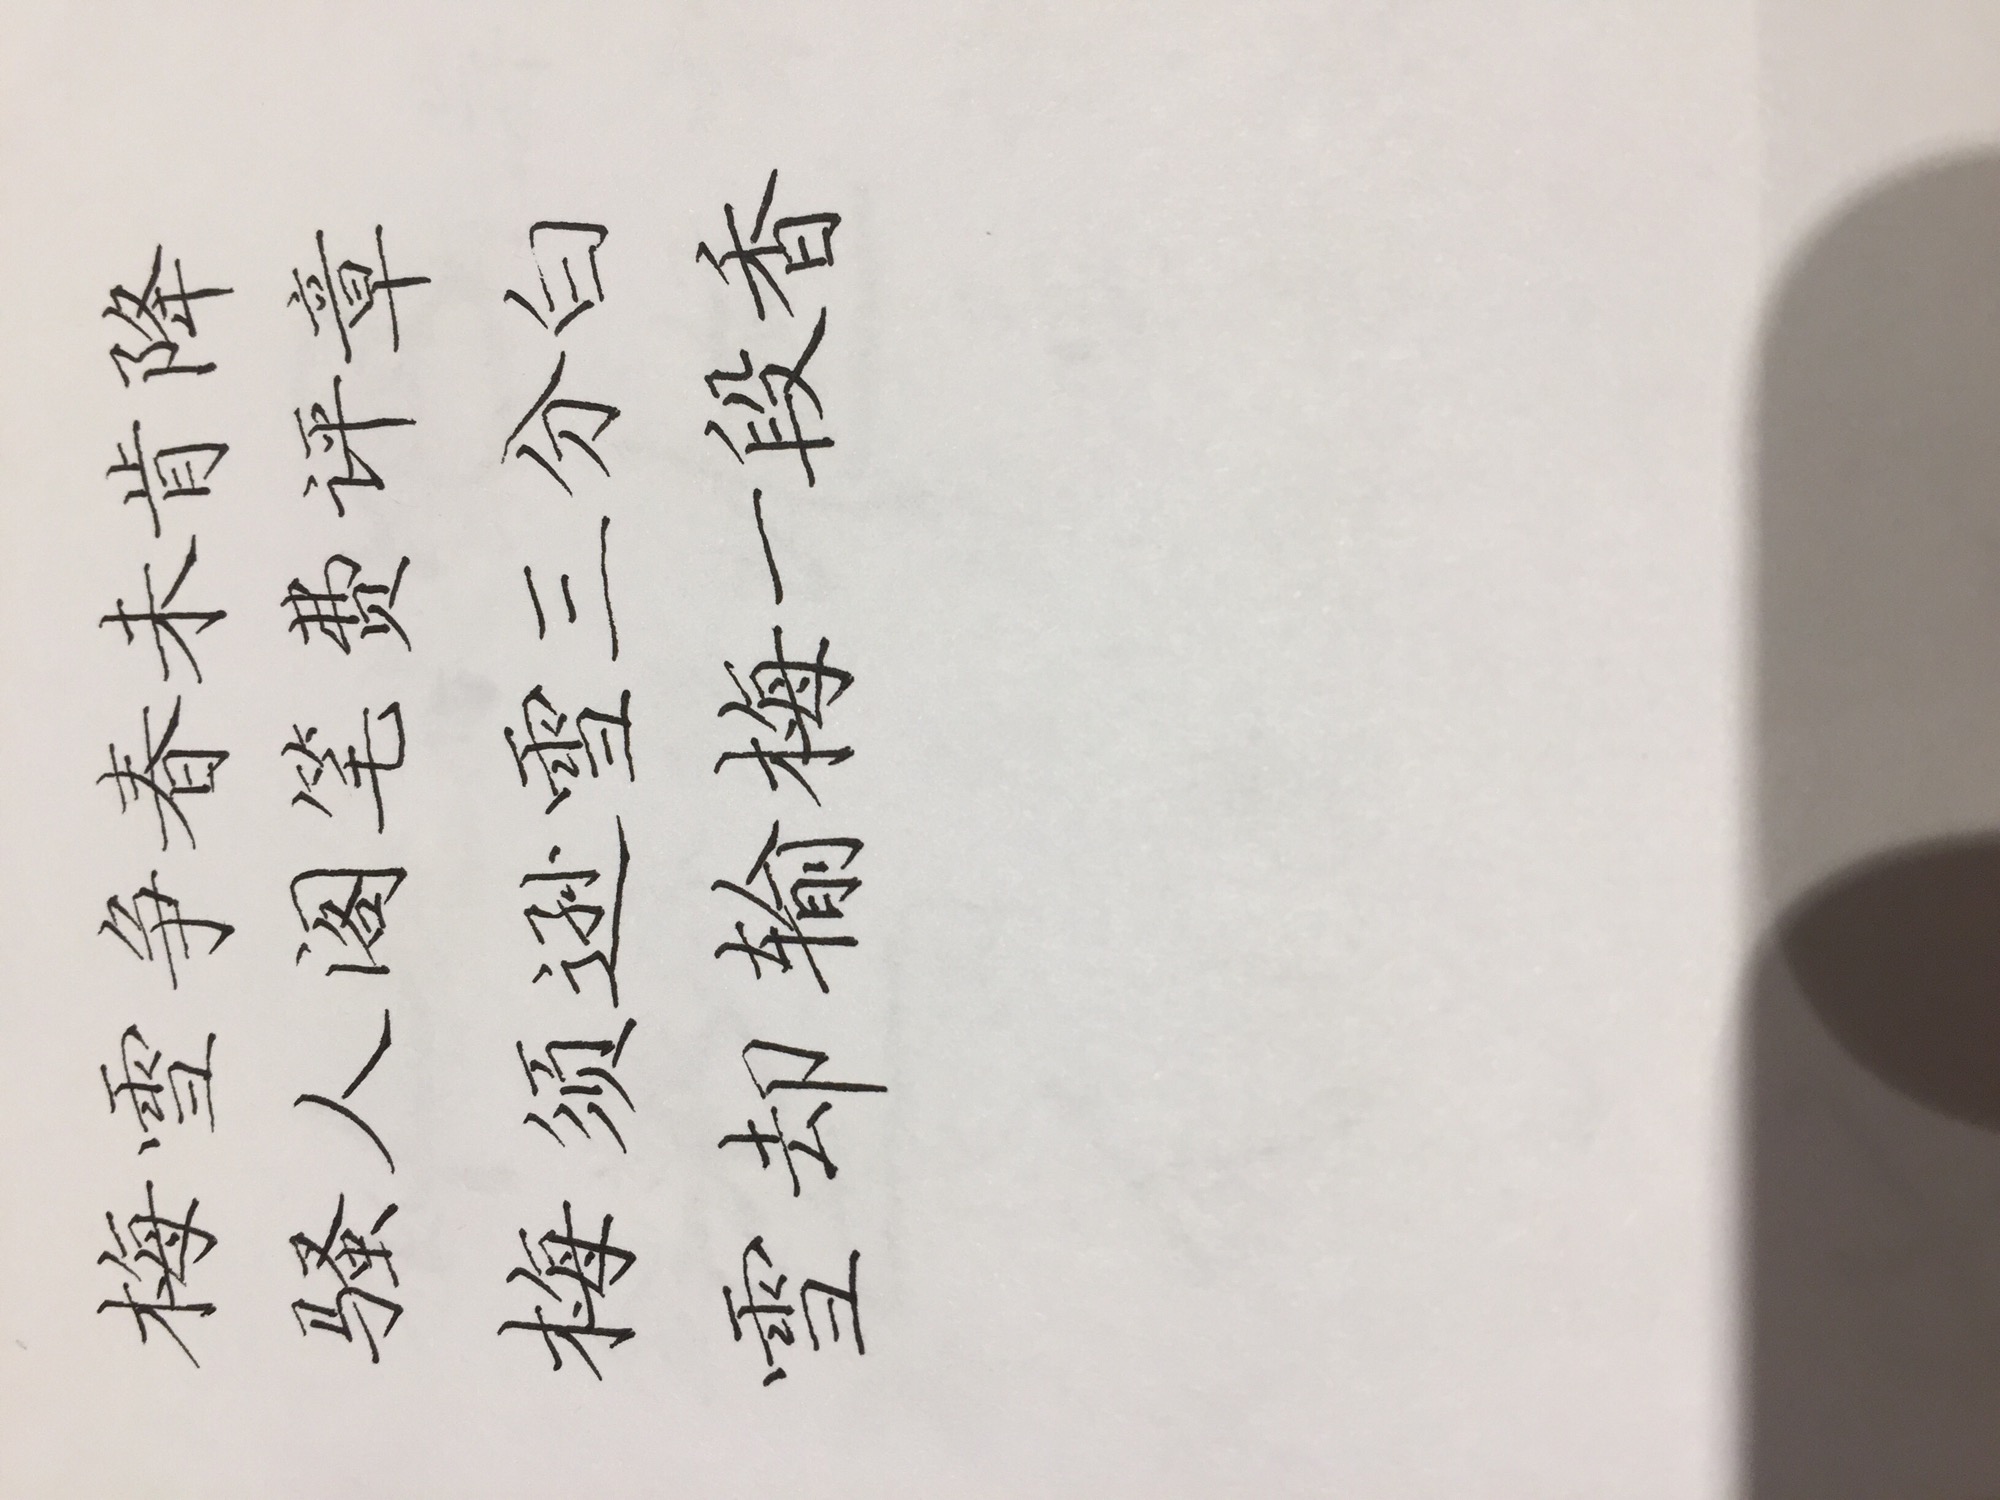 梅雪争春未肯降
骚人阁笔费评章
梅须逊雪三分白
雪却输梅一段香